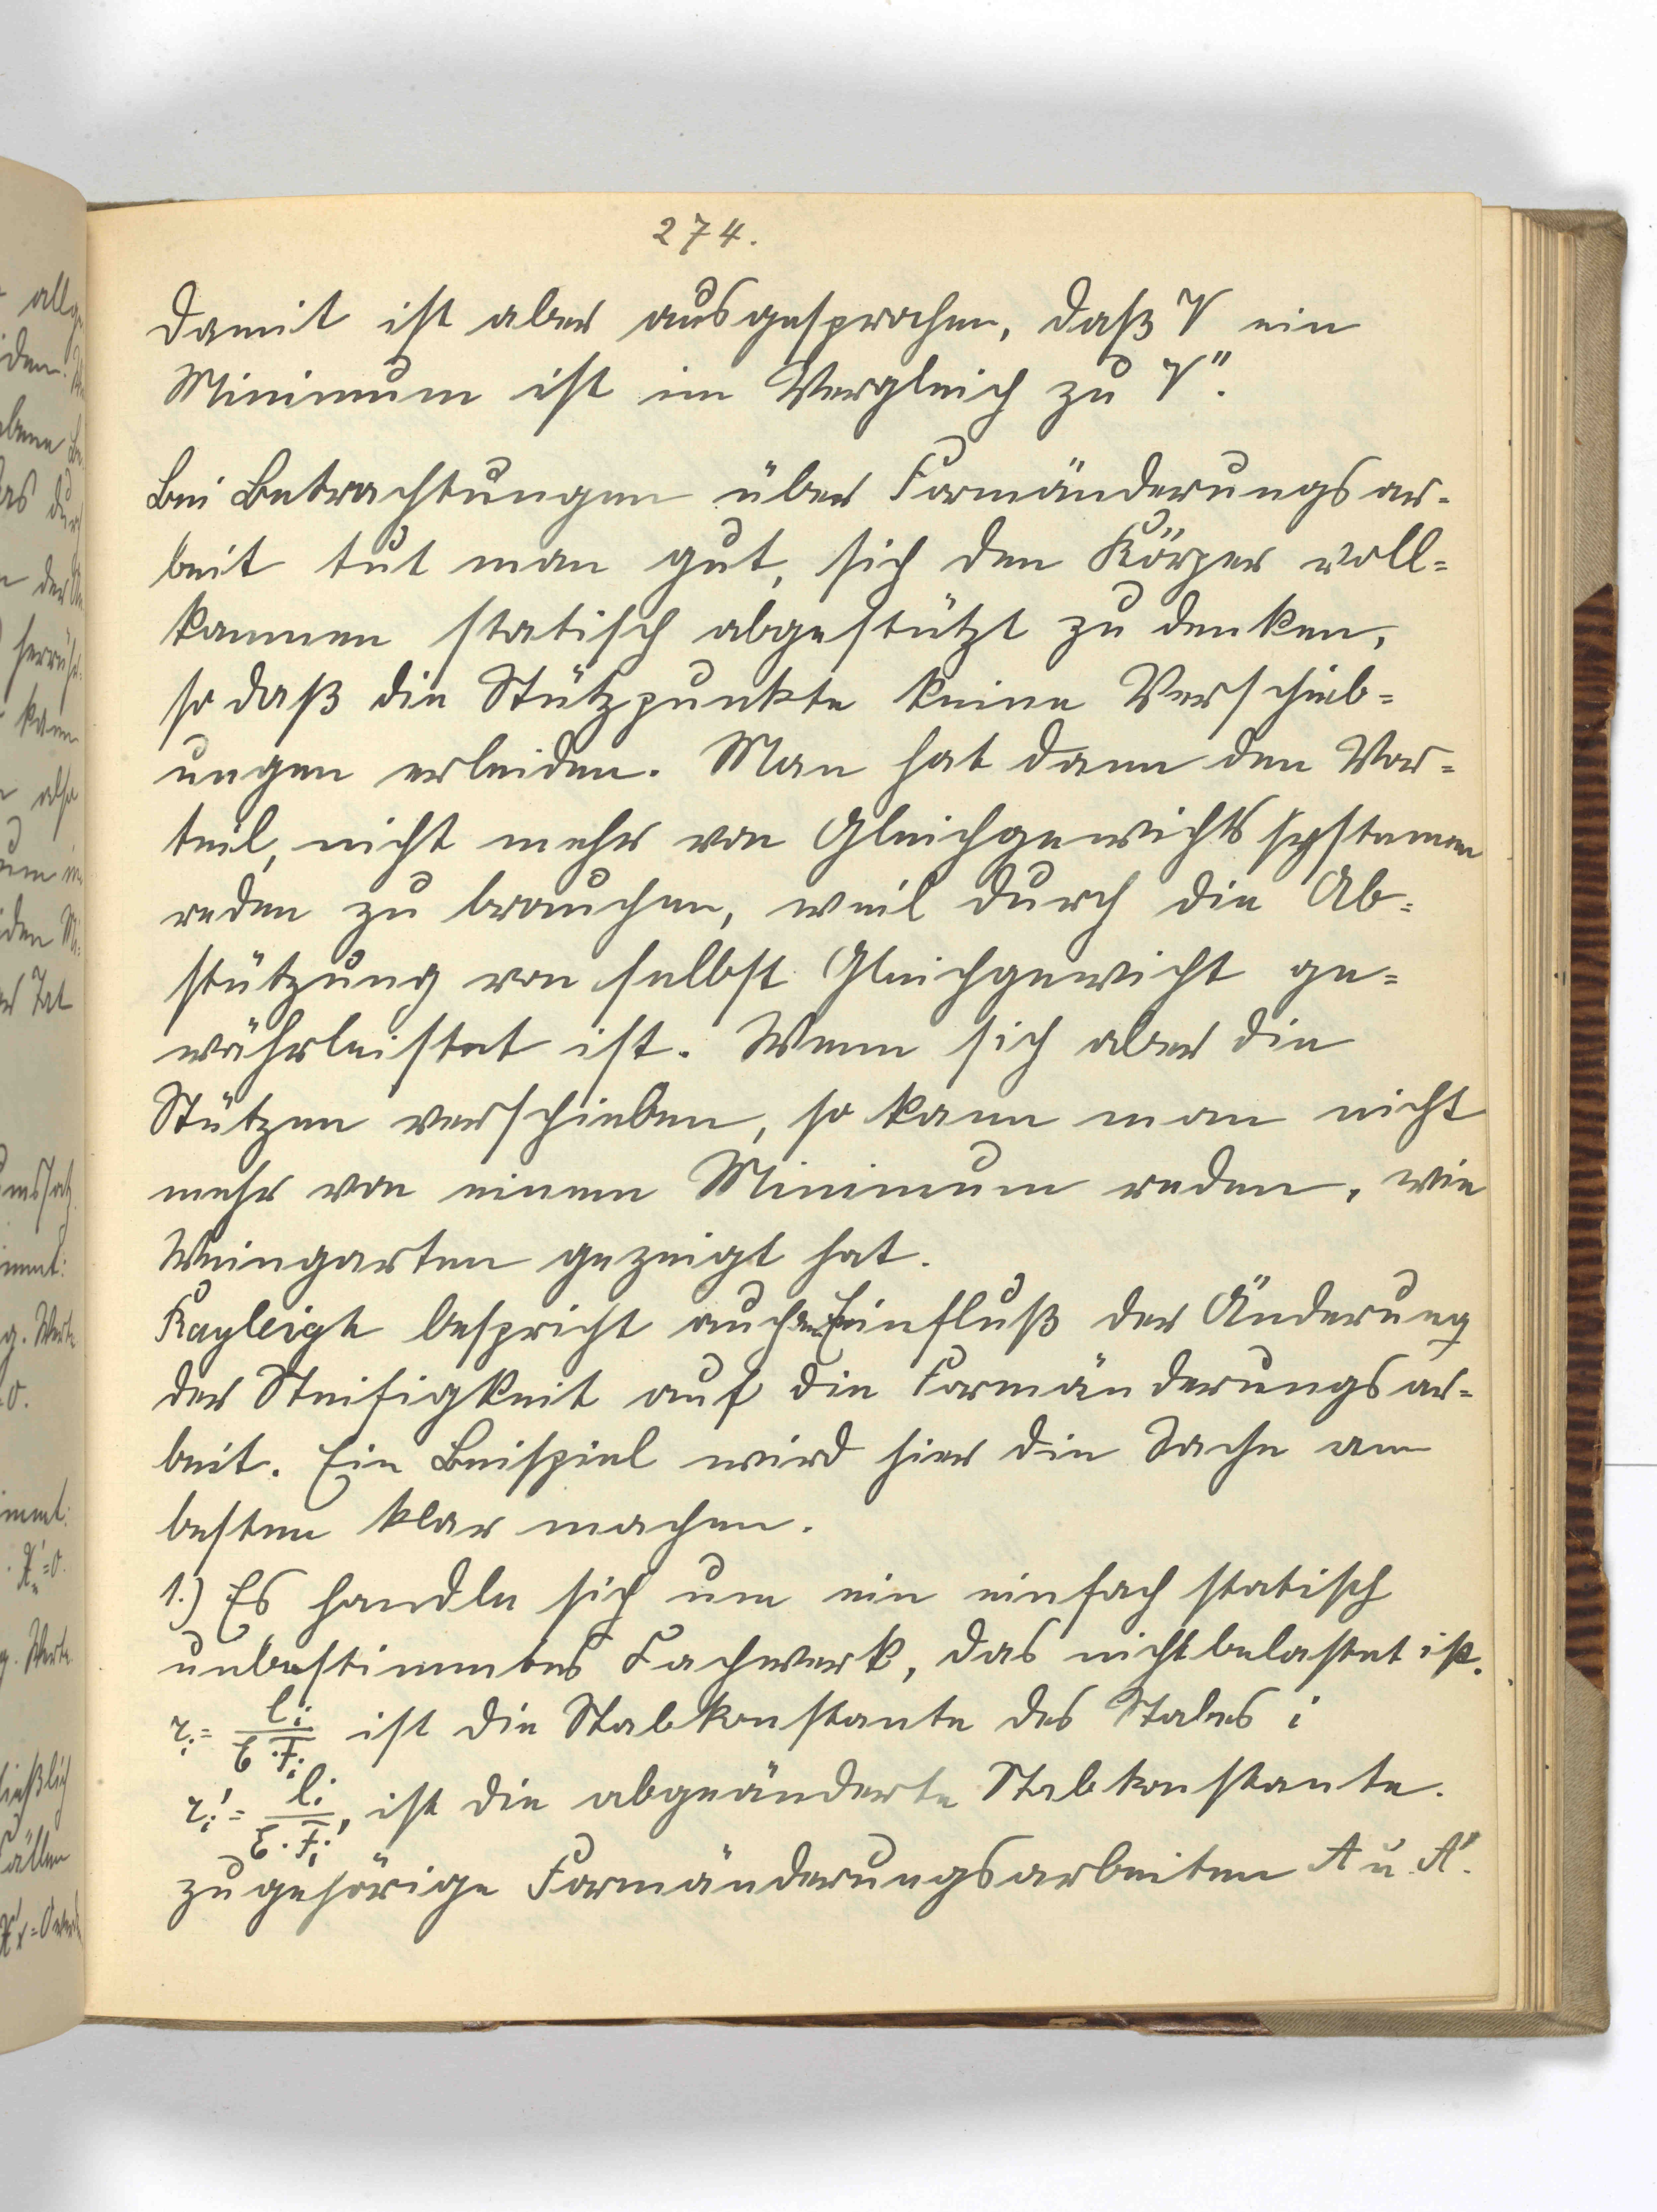 274.
Damit ist aber ausgesprochen, daß V ein
Minimum ist im Vergleich zu V".
Bei Betrachtungen über Formänderungsar-
beit tut man gut, sich den Körper voll-
kommen statisch abgestützt zu denken,
so daß die Stützpunkte keine Verschieb-
ungen erleiden. Man hat dann den Vor-
teil, nicht mehr von Gleichgewichtssystemen
reden zu brauchen, weil durch die Ab-
stützung von selbst Gleichgewicht ge-
währleistet ist. Wenn sich aber die
Stützen verschieben, so kann man nicht
mehr von einem Minimum reden, wie
Weingarten gezeigt hat.
Rayleigh bespricht auch den Einfluß der Änderung
der Steifigkeit auf die Formänderungsar-
beit. Ein Beispiel wird hier die Sache am
besten klar machen.
1.) Es handle sich um ein einfach statisch
unbestimmtes Fachwerk, das nicht belastet ist.
r_i = l_i / E·F_i ist die Stabkonstante des Stabes i
r_i' = l_i / E·F_i', ist die abgeänderte Stabkonstante.
zugehörige Formänderungsarbeiten A u. A'.